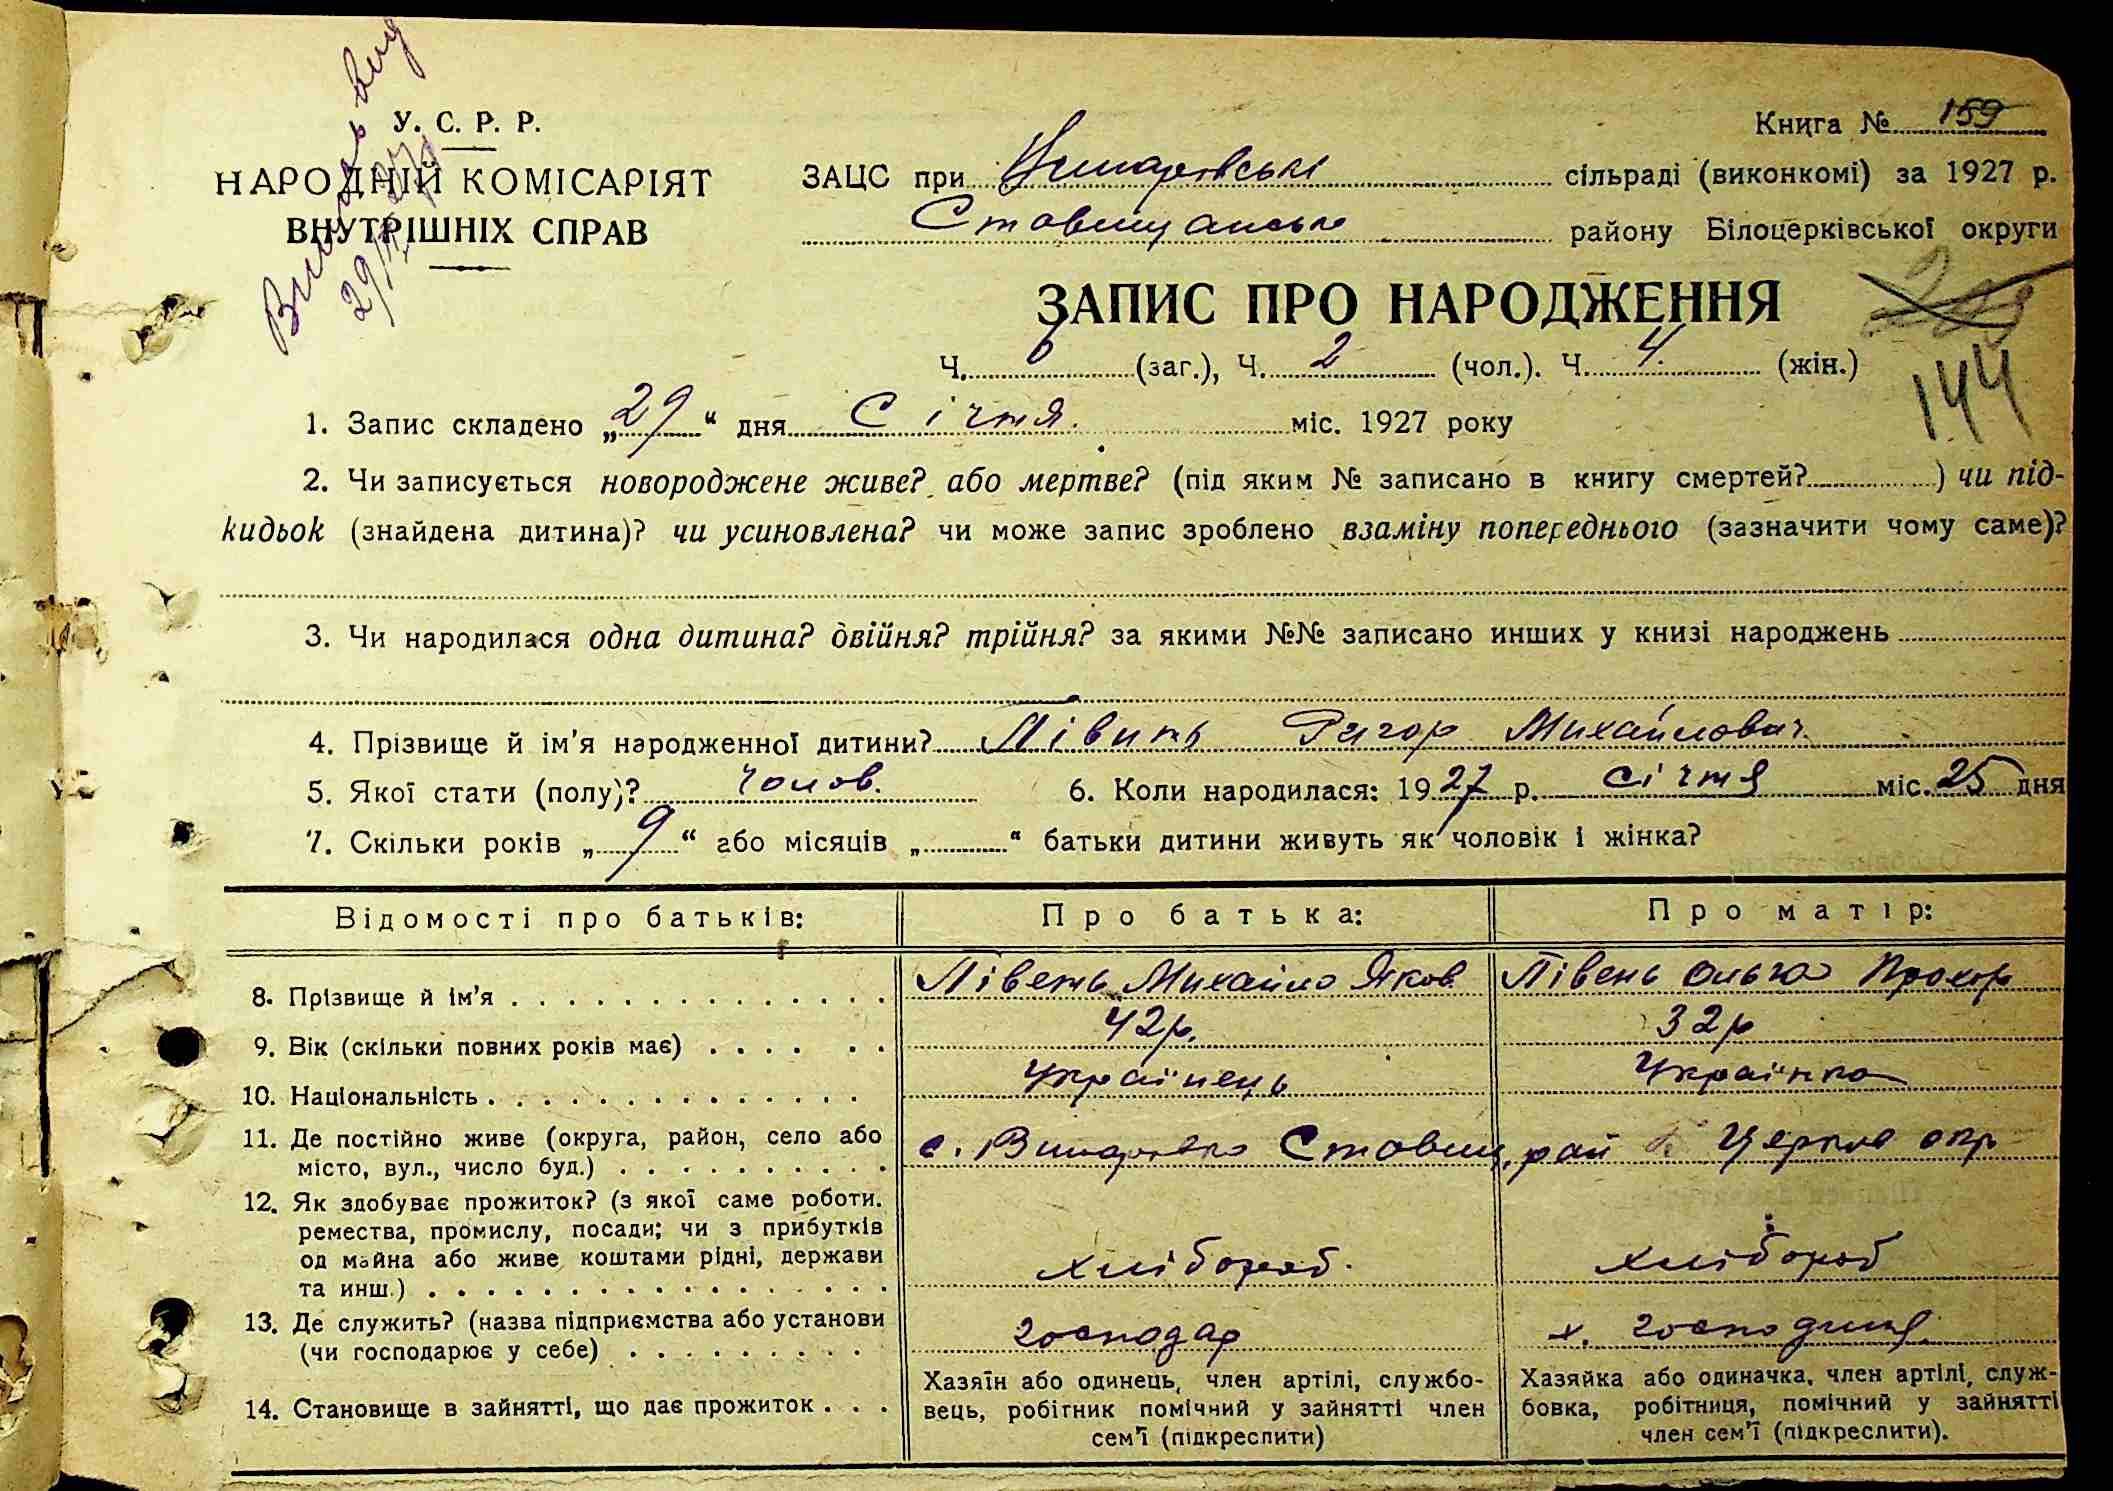 У. С. Р. Р.
НАРОДНІЙ КОМІСАРІЯТ
ВНУТРІШНІХ СПРАВ
Книга № 159
ЗАЦС при сільраді (виконкомі) за 1927 р.
Ставищанськ району Білоцерківської округи
ЗАПИС ПРО НАРОДЖЕННЯ
144
Ч. 6 (заг.), Ч. 2 (чол.). Ч. 4 (жін.)
1. Запис складено „29“ дня Січтя міс. 1927 року
2. Чи записується новороджене живе? або мертве? (під яким № записано в книгу смертей? ) чи під-
кидьок (знайдена дитина)? чи усиновлена? чи може запис зроблено взаміну попереднього (зазначити чому саме)?
3. Чи народилася одна дитина? двійня? трійня? за якими №№ записано инших у книзі народжень
4. Прізвище й ім'я народженної дитини? Григор Михайлович
5. Якої стати (полу)? чолов. 6. Коли народилася: 1927 р. січтя міс. 25 дня
7. Скільки років „9“ або місяців „ “ батьки дитини живуть як чоловік і жінка?
Відомості про батьків: Про батька: Про матір:
8. Прізвище й ім'я Півень Михайло Яков Півень Ольга Прохор
9. Вік (скільки повних років має) 42р. 32р
10. Національність українець Українка
11. Де постійно живе (округа, район, село або
місто, вул., число буд.) с. Винарівка Ставищ. рай Б Церков окр
12. Як здобуває прожиток? (з якої саме роботи.
ремества, промислу, посади; чи з прибутків
од майна або живе коштами рідні, держави
та инш.) хлібороб. хлібороб
13. Де служить? (назва підприємства або установи
(чи господарює у себе) господар х. господиня.
14. Становище в зайнятті, що дає прожиток
Хазяїн або одинець, член артілі, службо-
вець, робітник помічний у зайнятті член
сем'ї (підкреслити)
Хазяйка або одиначка, член артілі, служ-
бовка, робітниця, помічний у зайнятті
член сем'ї (підкреслити).